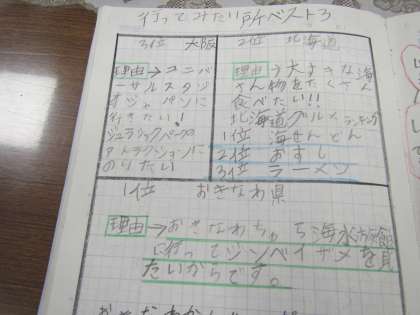 行ってみたい所ベスト3
3位 大阪
理由→ユニバ
ーサルスタジ
オジャパンに
行きたい!
ジュラシックパークの
アトラクションに
のりたい
2位 北海道
理由→大すきな海
さん物をたくさん
食べたい!!
北海道グルメランキング
1位 海せんどん
2位 おすし
3位 ラーメン
1位 おきなわ県
理由→おきなわちゅら海水族館
に行ってジンベイザメを見
たいからです。